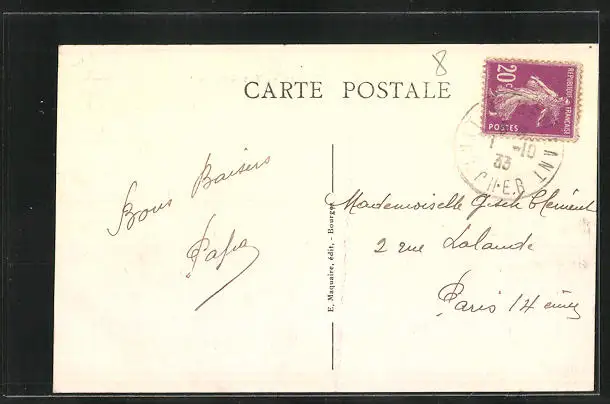 8
CARTE POSTALE
20c
REPUBLIQUE FRANÇAISE
POSTES
-10
33
CHER
Bons Baisers
Papa
E. Maquaire, édit. - Bourges
Mademoiselle Clément
2 rue Lalande
Paris 14 ème